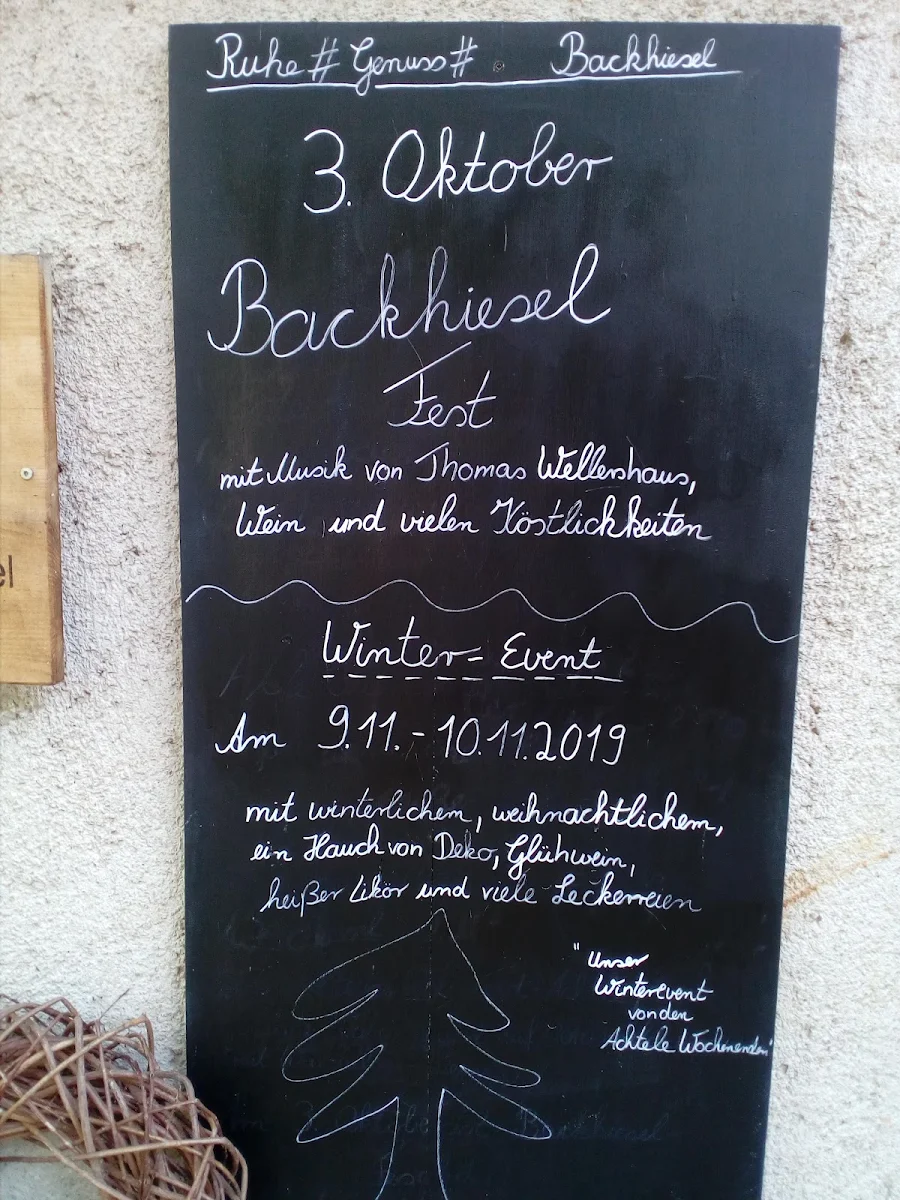 Ruhe # Genuss # Backhiesel
3. Oktober
Backhiesel
Fest
mit Musik von Thomas Wellenshaus,
Wein und vielen Köstlichkeiten
Winter - Event
Am 9.11. - 10.11.2019
mit winterlichem, weihnachtlichem,
ein Hauch von Deko, Glühwein,
heißer Likör und viele Leckerreien
"Unser
Winterevent
von den
Achtele Wochenenden"
el